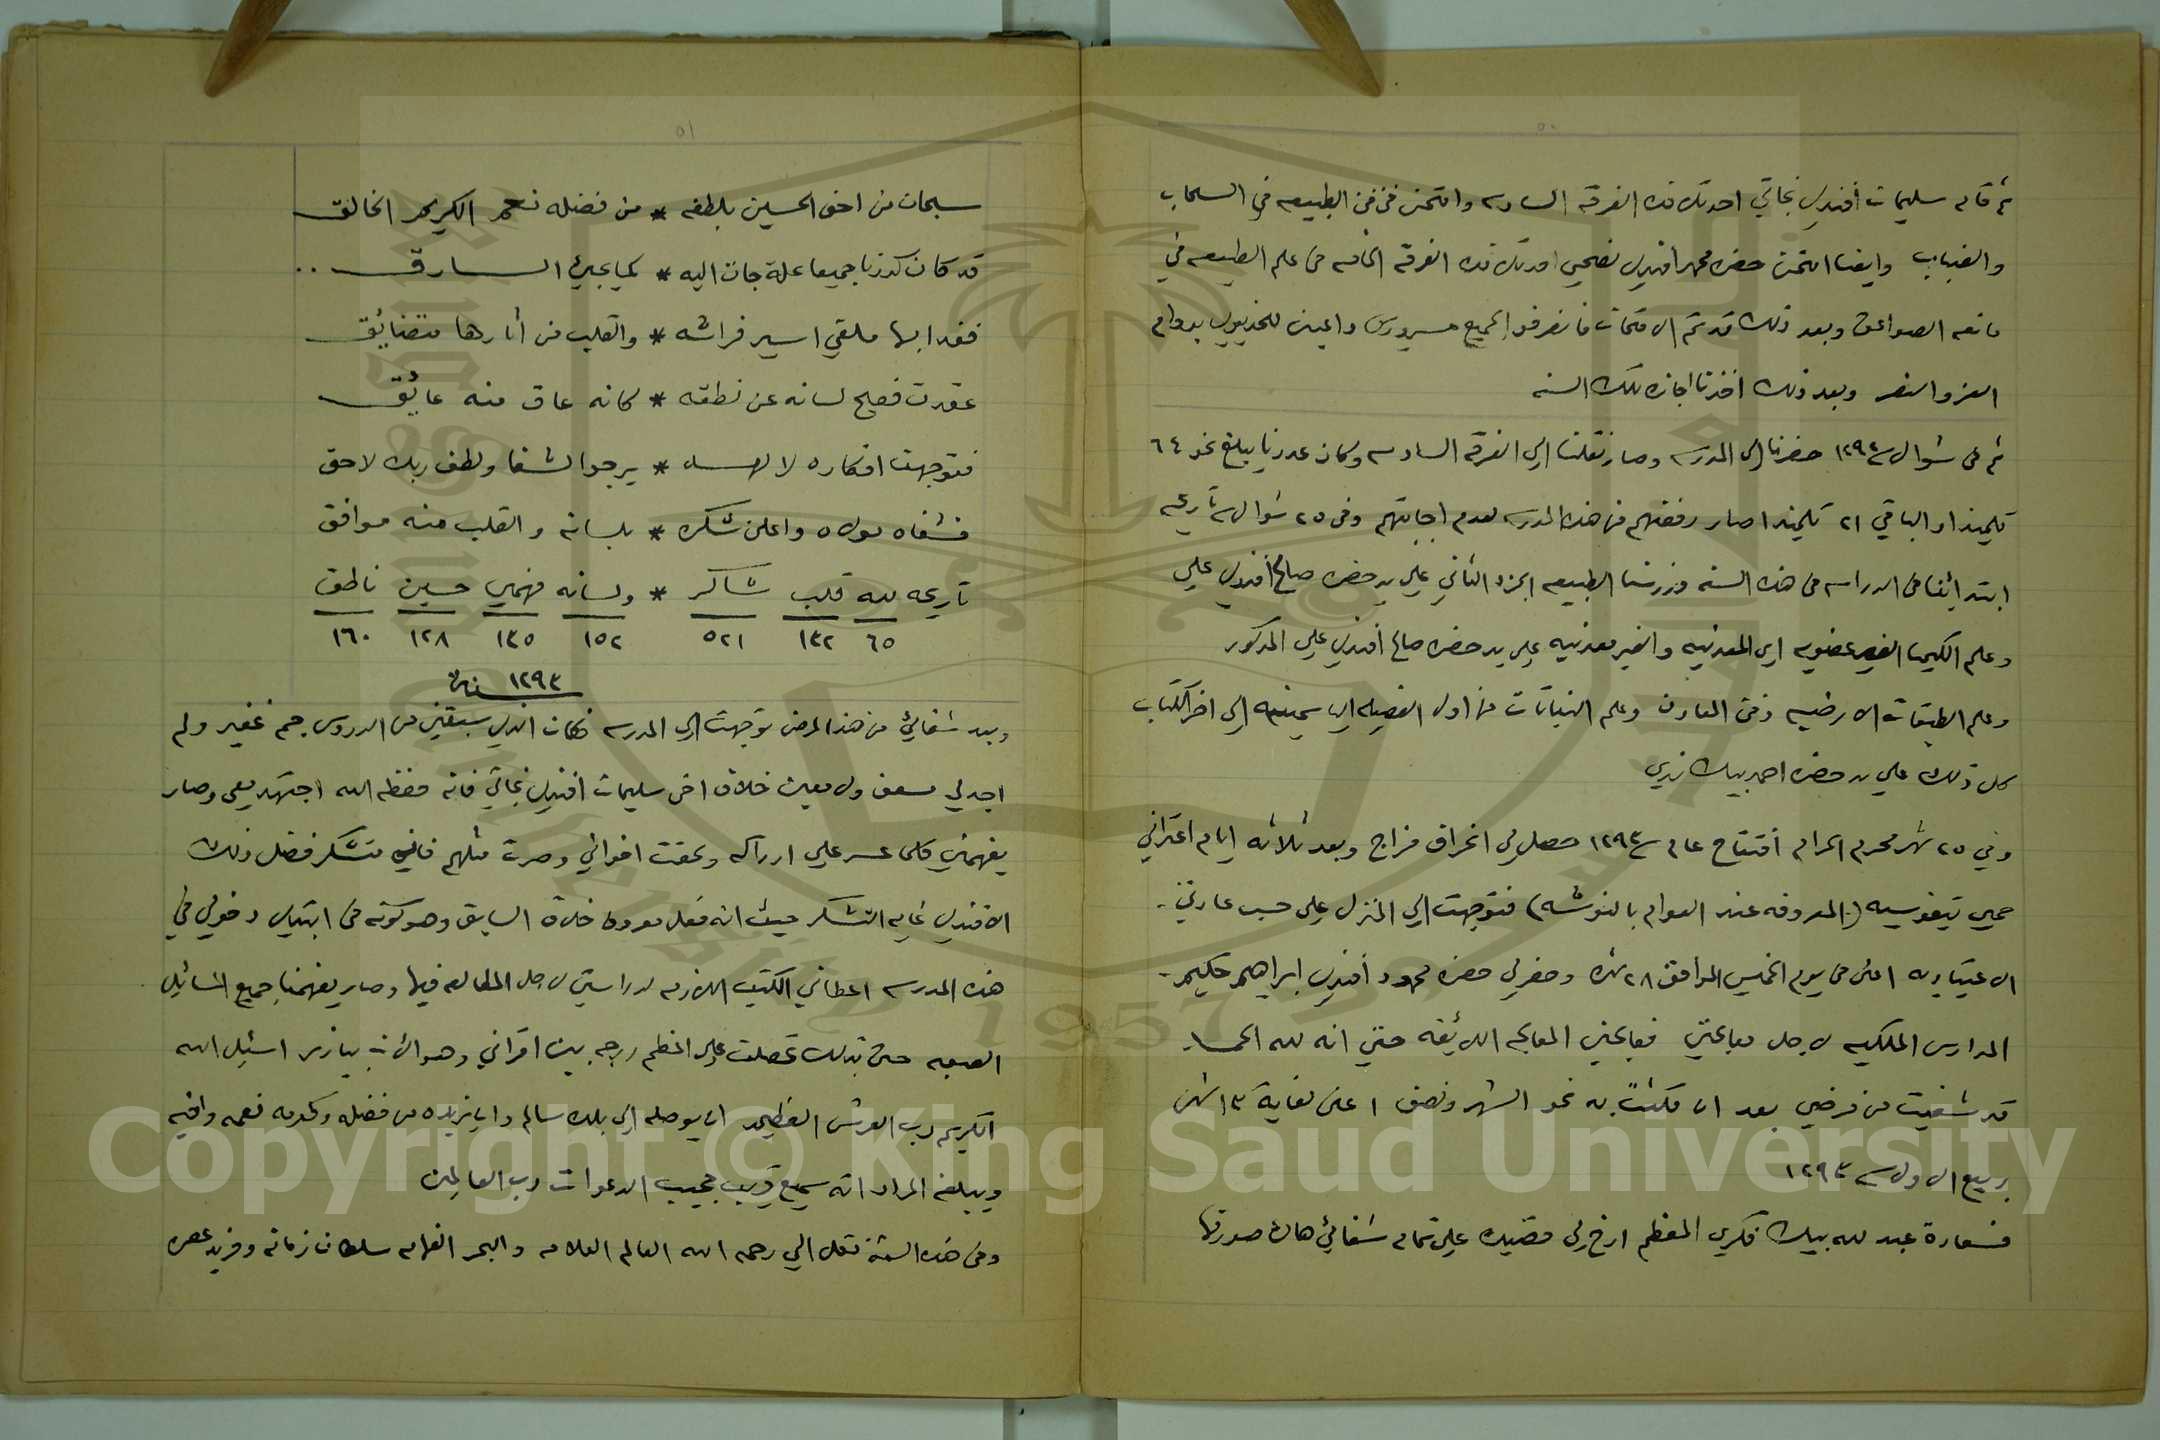 ٥٠
ثم قام سليمان أفندي نجاتي احد تلامذة الفرقه السادسه وامتحن في فن الطبيعه في السحاب
والضباب وايضا امتحن حضرة محمد افندي فهمي احد تلامذة الفرقه الخامسه في علم الطبيعه في
مانعه الصواعق وبعد ذلك قد تم الامتحان فانصرفوا الجميع مسرورين داعين للخديوي بدوام
العز والنصر وبعد ذلك اخذنا اجازة تلك السنه
ثم في شوال سنة ١٢٩٢ حضرنا الي المدرسه وصار نقلنا الي الفرقه السادسه وكان عددنا يبلغ نحو ٦٤
تلميذا والباقي ٢١ تلميذا صار رفتهم من هذه المدرسه لعدم اجابتهم وفي ٢٥ شوال سنة تاريخه
ابتدائنا في الدراسه في هذه السنه ودرسنا الطبيعه الجزء الثاني علي يد حضرة صالح أفندي علي
وعلم الكيميا الغير عضويه اي المعدنيه والغير معدنيه علي يد حضرة صالح أفندي علي المذكور
وعلم الطبقات الارضيه وفن المعادن وعلم النباتات من اول الفصيله الياسمينيه الي اخر الكتاب
كل ذلك علي يد حضرة احمد بيك ندي
وفي ٢٥ شهر محرم الحرام افتتاح عام سنة ١٢٩٣ حصل لي انحراف مزاج وبعد ثلاثه ايام اعتراني
حمي تيفوسيه (المعروفه عند العوام بالنوشه) فتوجهت الي المنزل علي حسب عادتي
الاعتياديه اعني في يوم الخميس الموافق ٢٨ منه وحضر لي حضرة محمود أفندي ابراهيم حكيم
المدارس الملكيه لاجل معالجتي فعالجني المعالجه اللائقه حتي انه لله الحمد
قد شفيت من مرضي بعد ان مكثت به نحو الشهر ونصف اعني لغاية ١٣ شهر
ربيع الاول سنة ١٢٩٣
فسعادة عبد لله بيك فكري المعظم ارخ لي قصيدة علي تمام شفائي هاك صورتها
٥١
سبحان من احق الحسين بلطفه * من فضله نعم الكريم الخالق
قد كان كدرنا جميعا علة جات اليه * كما يجيئ السارق
فغدا بها ملقي اسير فراشه * والقلب من أثارها متضائق
عقدت فصيح لسانه عن نطقه * كانه عاق منه عائق
فتوجهت افكاره لالهه * يرجو الشفا ولطف ربك لاحق
فشفاه مولاه واعلن شكره * بلسانه والقلب منه موافق
تاريخه لله قلب شاكر * ولسانه فهمي حسين ناطق
٦٥ ١٣٢ ٥٢١ ١٥٢ ١٣٥ ١٢٨ ١٦٠
١٢٩٣ سنة
وبعد شفائي من هذا المرض توجهت الي المدرسه فكان الذي سبقني من الدروس جم غفير ولم
اجد لي مسعف ولا معين خلاف اخي سليمان افندي نجاتي فانه حفظه الله اجتهد معي وصار
يفهمني كلما عسر علي ادراكه ولحقت اخواني وصرت مثلهم فاني متشكر فضل ذلك
الافندي غايه التشكر حيث انه فعل معروف خلاف السابق وهو كونه في ابتداي دخولي في
هذه المدرسه اعطاني الكتب اللازمه لدراستي لاجل المطالعه فيها وصار يفهمني جميع المسائل
الصعبه حتي بذلك تحصلت علي اعظم درجه بين اقراني وهو الان ببنازير اسئل الله
الكريم رب العرش العظيم ان يوصله الي بلده سالم وان يزيده من فضله وكرمه نعمه وافيه
ويبلغه المراد انه سميع قريب مجيب الدعوات رب العالمين
وفي هذه السنة نقل الي رحمه الله العالم العلامه والبحر الفهامه سلطان زمانه وفريد عصره